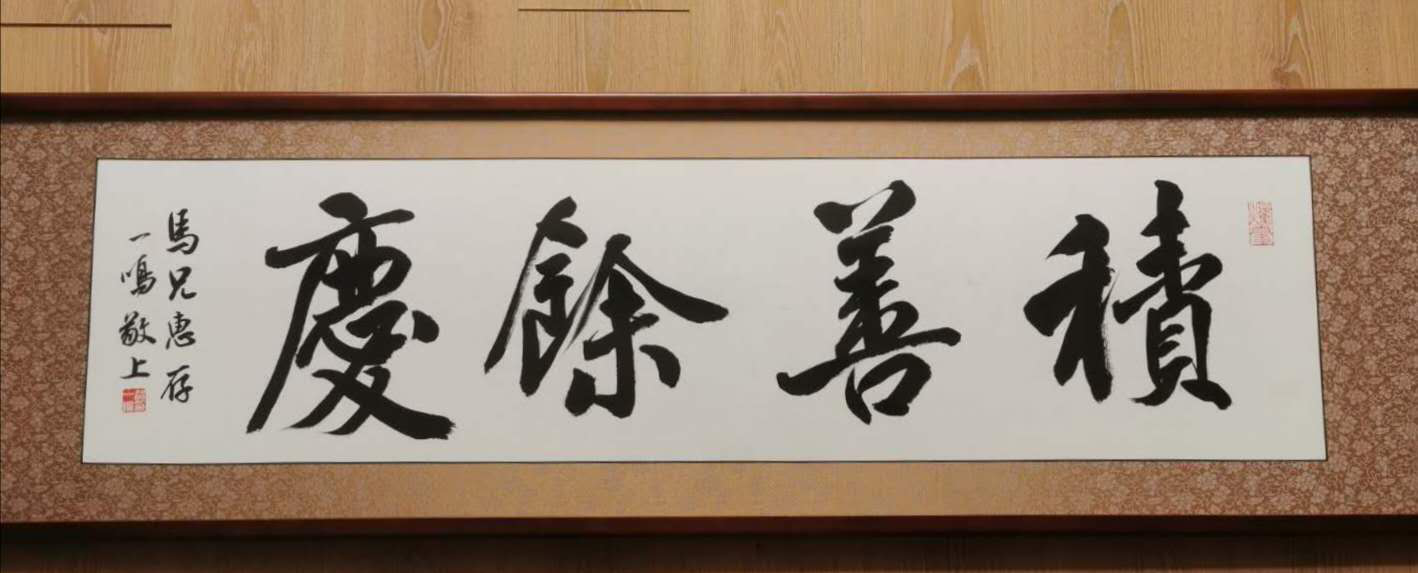 積善餘慶
馬兄惠存
一鳴敬上